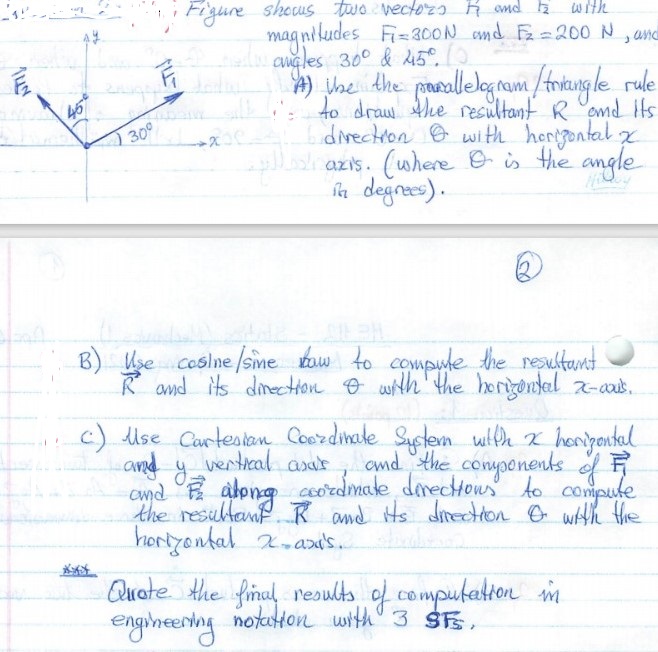 Figure shows two vectors F₁ and F₂ with
magnitudes F₁=300N and F₂=200 N, and
angles 30° & 45°.
A) Use the parallelogram/triangle rule
to draw the resultant R and its
direction θ with horizontal x
axis. (where θ is the angle
in degrees).
y
F₂
F₁
45°
30°
x
2
B) Use cosine/sine law to compute the resultant
R and its direction θ with the horizontal x-axis.
C) Use Cartesian Coordinate System with x horizontal
and y vertical axis, and the components of F₁
and F₂ along coordinate directions to compute
the resultant R and its direction θ with the
horizontal x-axis.
*** Quote the final results of computation in
engineering notation with 3 SFs.